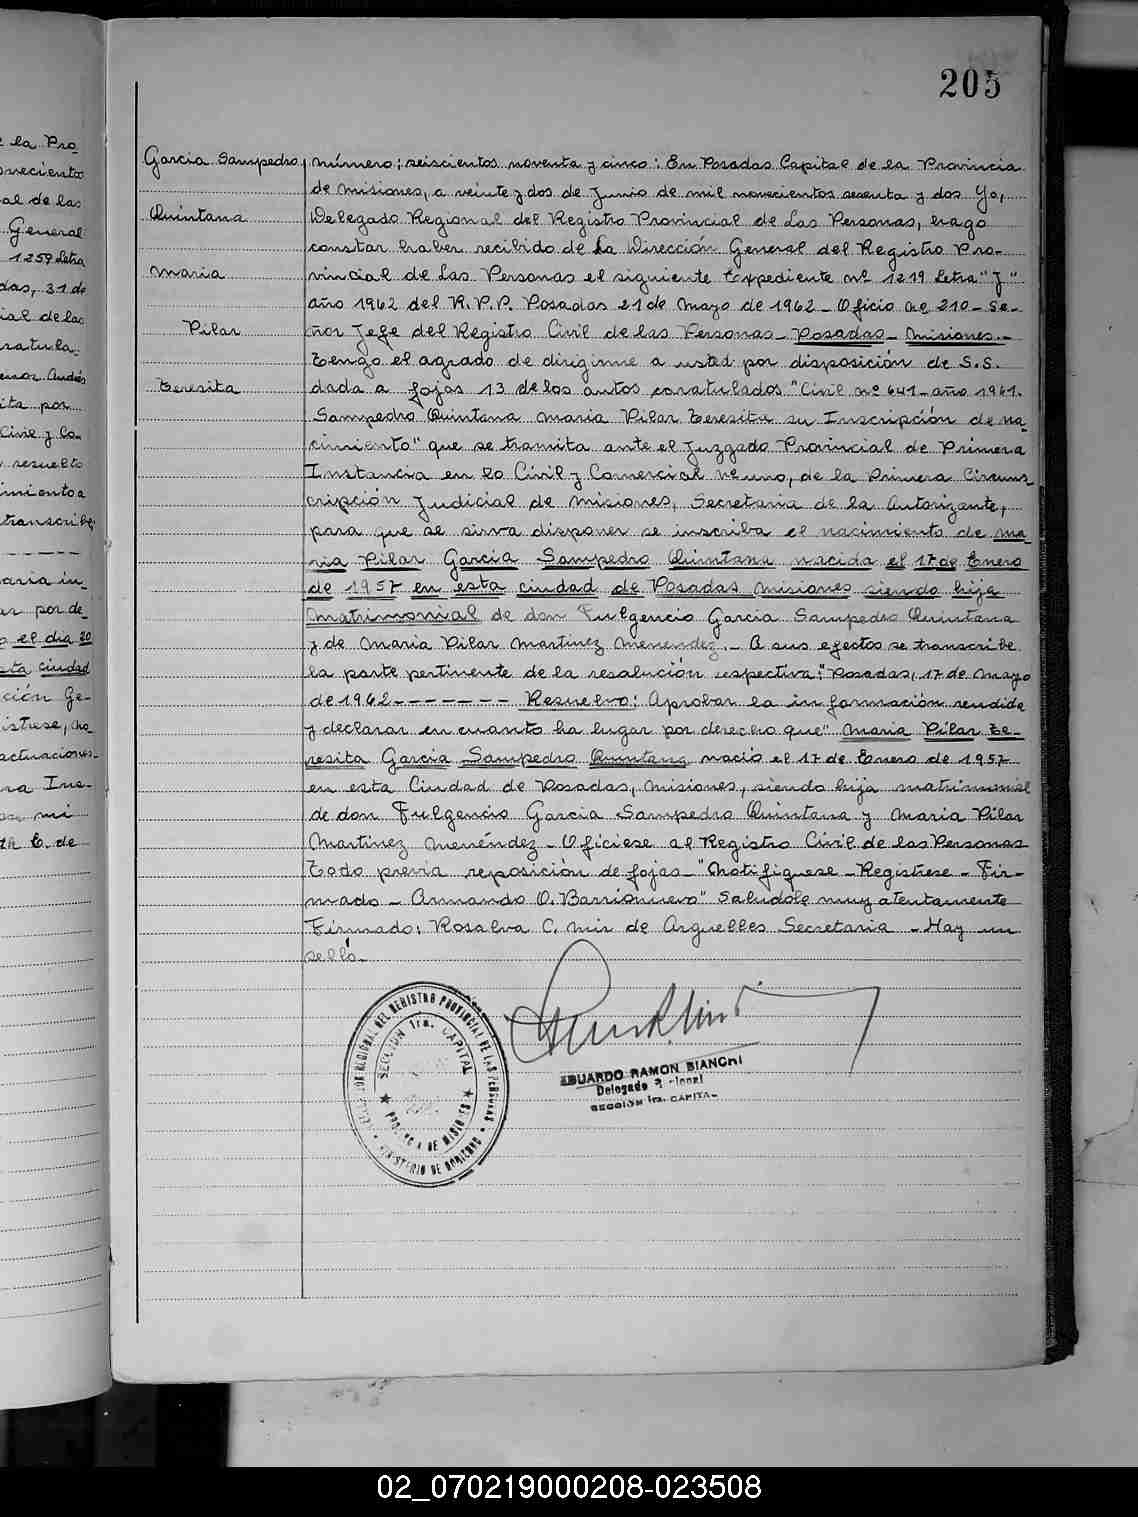 205
Garcia Sampedro
Quintana
Maria
Pilar
Teresita
número; seiscientos noventa y cinco: En Posadas Capital de la Provincia
de Misiones, a veinte y dos de Junio de mil novecientos sesenta y dos Yo,
Delegado Regional del Registro Provincial de Las Personas, hago
constar haber recibido de La Dirección General del Registro Pro-
vincial de Las Personas el siguiente Expediente nº 1219 Letra "J"
año 1962 del R.P.P. Posadas 21 de Mayo de 1962 - Oficio nº 210 - Se-
ñor Jefe del Registro Civil de las Personas - Posadas - Misiones.-
Tengo el agrado de dirigirme a usted por disposición de S.S.
dada a fojas 13 de los autos caratulados "Civil nº 641 - año 1961.
Sampedro Quintana Maria Pilar Teresita su Inscripción de na-
cimiento" que se tramita ante el Juzgado Provincial de Primera
Instancia en lo Civil y Comercial nº uno, de la Primera Circuns
cripción Judicial de Misiones, Secretaria de la Autorizante,
para que se sirva disponer se inscriba el nacimiento de Ma-
ria Pilar Garcia Sampedro Quintana nacida el 17 de Enero
de 1957 en esta ciudad de Posadas Misiones siendo hija
Matrimonial de don Fulgencio Garcia Sampedro Quintana
y de Maria Pilar Martinez Menendez.- A sus efectos se transcribe
la parte pertinente de la resolución respectiva: "Posadas, 17 de Mayo
de 1962 - - - - - - - Resuelvo: Aprobar la información rendida
y declarar en cuanto ha lugar por derecho que" Maria Pilar Te-
resita Garcia Sampedro Quintana nació el 17 de Enero de 1957
en esta Ciudad de Posadas, Misiones, siendo hija matrimonial
de don Fulgencio Garcia Sampedro Quintana y Maria Pilar
Martinez Menéndez - Ofíciese al Registro Civil de las Personas
Todo previa reposición de fojas - "Notifiquese - Registrese - Fir-
mado - Armando O. Barrionuevo" Saludole muy atentamente
Firmado: Rosalva C. Mir de Arguelles Secretaria - Hay un
sello.-
REGIONAL DEL REGISTRO PROVINCIAL DE LAS PERSONAS
SECCION 1ra. CAPITAL
PROVINCIA DE MISIONES
MINISTERIO DE GOBIERNO
EDUARDO RAMON BIANCHI
Delegado Regional
SECCION 1ra. CAPITAL
la Pro-
novecientos
al de las
General
1259 Letra
das, 31 de
ial de las
ratula-
Andrés
ita por
Civil y Co-
resuelto
imiento a
transcribe
aria in-
ar por de-
el dia 20
sta ciudad
ción Ge-
istrese, no
actuaciones.-
ra Ins-
mi
C. de
02_070219000208-023508